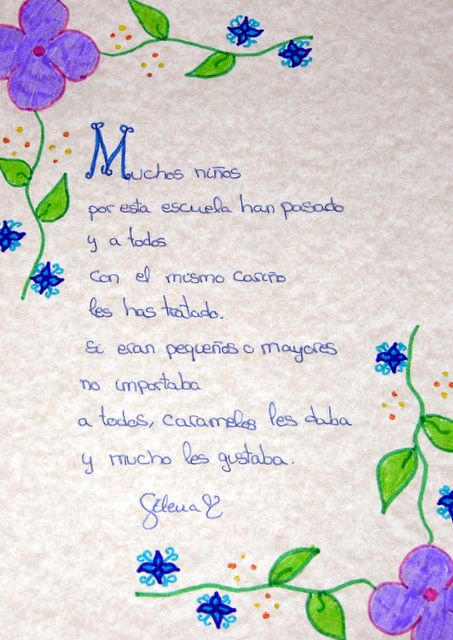 Muchos niños
por esta escuela han pasado
y a todos
con el mismo cariño
les has tratado.
Si eran pequeños o mayores
no importaba
a todos, caramelos les daba
y mucho les gustaba.